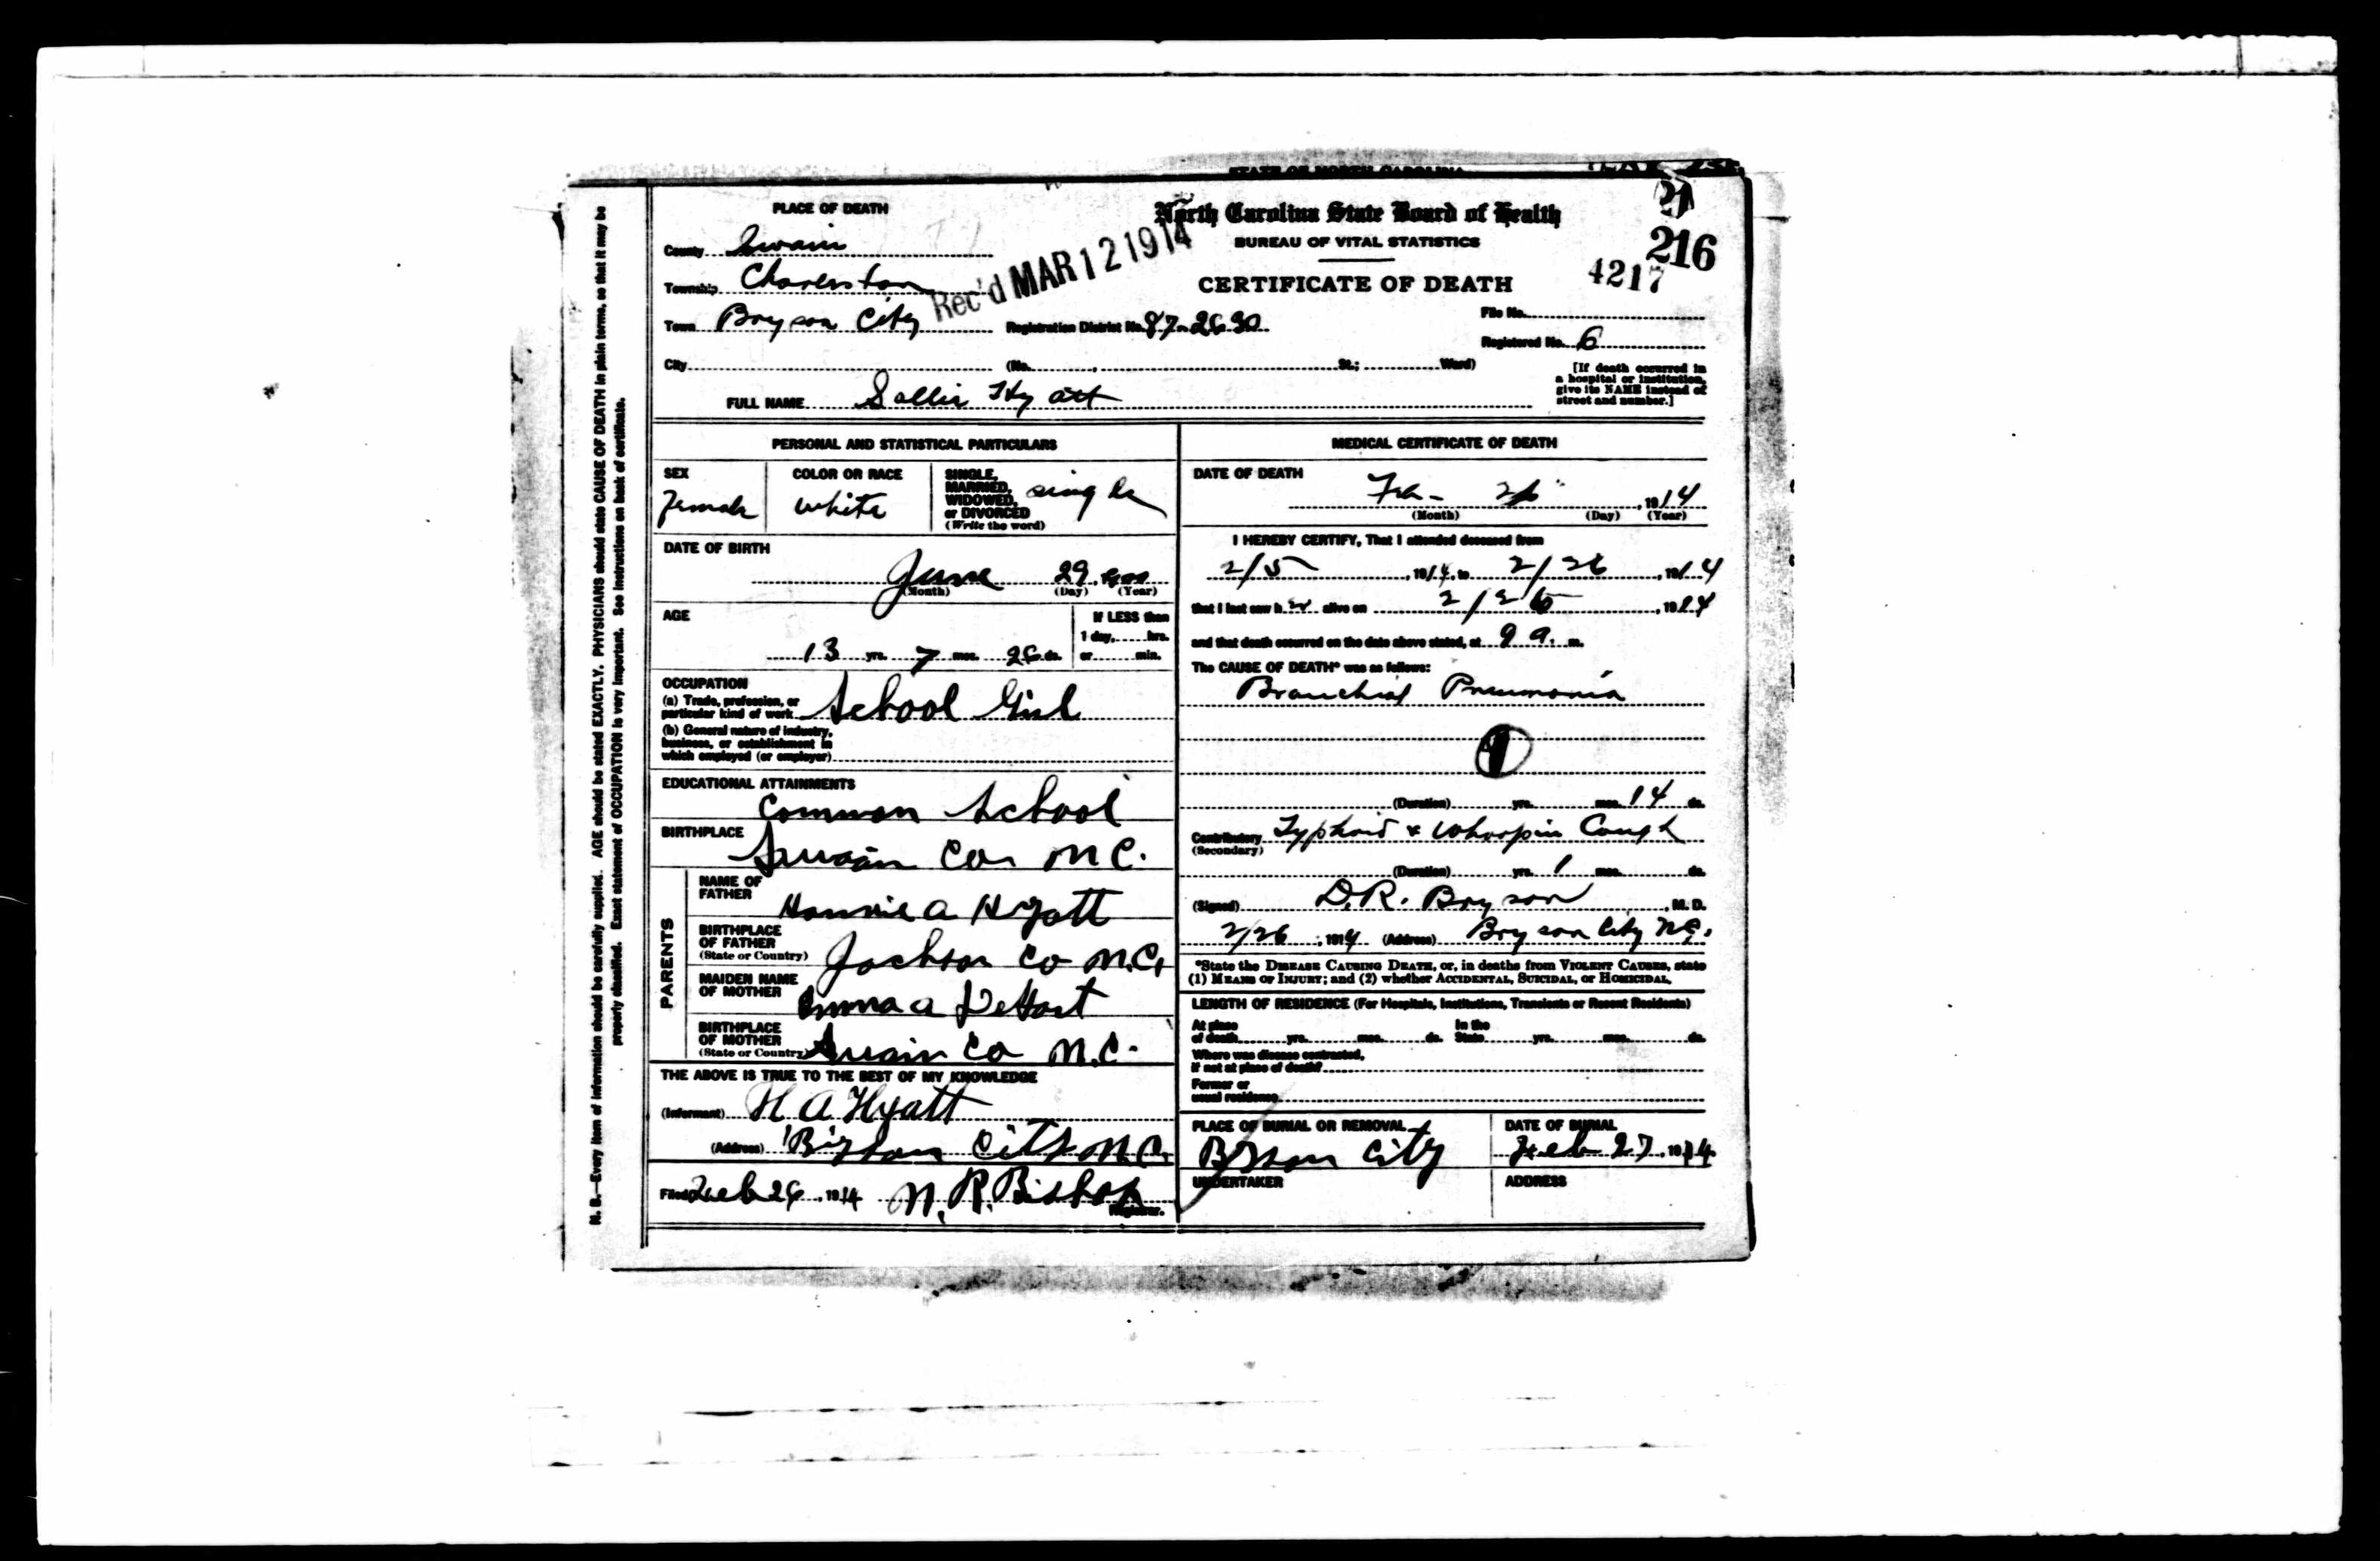 STATE OF NORTH CAROLINA
PLACE OF DEATH
North Carolina State Board of Health
BUREAU OF VITAL STATISTICS
CERTIFICATE OF DEATH
21
216
4217
Rec'd MAR 12 1914
County Swain
Township Charleston
Town Bryson City Registration District No. 87-2630
File No.
Registered No. 6
City (No. , St.; Ward)
[If death occurred in
a hospital or institution,
give its NAME instead of
street and number.]
FULL NAME Sallie Hyatt
PERSONAL AND STATISTICAL PARTICULARS
SEX
Female
COLOR OR RACE
White
SINGLE,
MARRIED,
WIDOWED,
or DIVORCED
(Write the word)
single
DATE OF BIRTH
June 29
(Month) (Day) (Year)
AGE
13 yrs. 7 mos. 26 ds.
If LESS than
1 day, hrs.
or min.
OCCUPATION
(a) Trade, profession, or
particular kind of work School Girl
(b) General nature of industry,
business, or establishment in
which employed (or employer)
EDUCATIONAL ATTAINMENTS
Common School
BIRTHPLACE
Swain Co. N C.
PARENTS
NAME OF
FATHER
A Hyatt
BIRTHPLACE
OF FATHER
(State or Country)
Jackson Co N.C.
MAIDEN NAME
OF MOTHER
Emma A DeHart
BIRTHPLACE
OF MOTHER
(State or Country)
Swain Co N.C.
THE ABOVE IS TRUE TO THE BEST OF MY KNOWLEDGE
(Informant) H A Hyatt
(Address) Bryson City N.C.
Filed Feb 26, 1914 N. R. Bishop
Registrar.
MEDICAL CERTIFICATE OF DEATH
DATE OF DEATH
26, 1914
(Month) (Day) (Year)
I HEREBY CERTIFY, That I attended deceased from
2/5, 1914, to 2/26, 1914
that I last saw h alive on 2/25, 1914
and that death occurred on the date above stated, at 9 a. m.
The CAUSE OF DEATH* was as follows:
Bronchial Pneumonia
(Duration) yrs. mos. 14 ds.
Contributory Typhoid & Whoopin Cough
(Secondary)
(Duration) yrs. 1 mos. ds.
(Signed) D. R. Bryson, M. D.
2/26, 1914 (Address) Bryson City N.C.
*State the DISEASE CAUSING DEATH, or, in deaths from VIOLENT CAUSES, state
(1) MEANS OF INJURY; and (2) whether ACCIDENTAL, SUICIDAL, or HOMICIDAL.
LENGTH OF RESIDENCE (For Hospitals, Institutions, Transients or Recent Residents)
At place
of death yrs. mos. ds.
In the
State yrs. mos. ds.
Where was disease contracted,
if not at place of death?
Former or
usual residence
PLACE OF BURIAL OR REMOVAL
Bryson City
DATE OF BURIAL
Feb 27, 1914
UNDERTAKER
ADDRESS
N. B.—Every item of information should be carefully supplied. AGE should be stated EXACTLY. PHYSICIANS should state CAUSE OF DEATH in plain terms, so that it may be
properly classified. Exact statement of OCCUPATION is very important. See instructions on back of certificate.